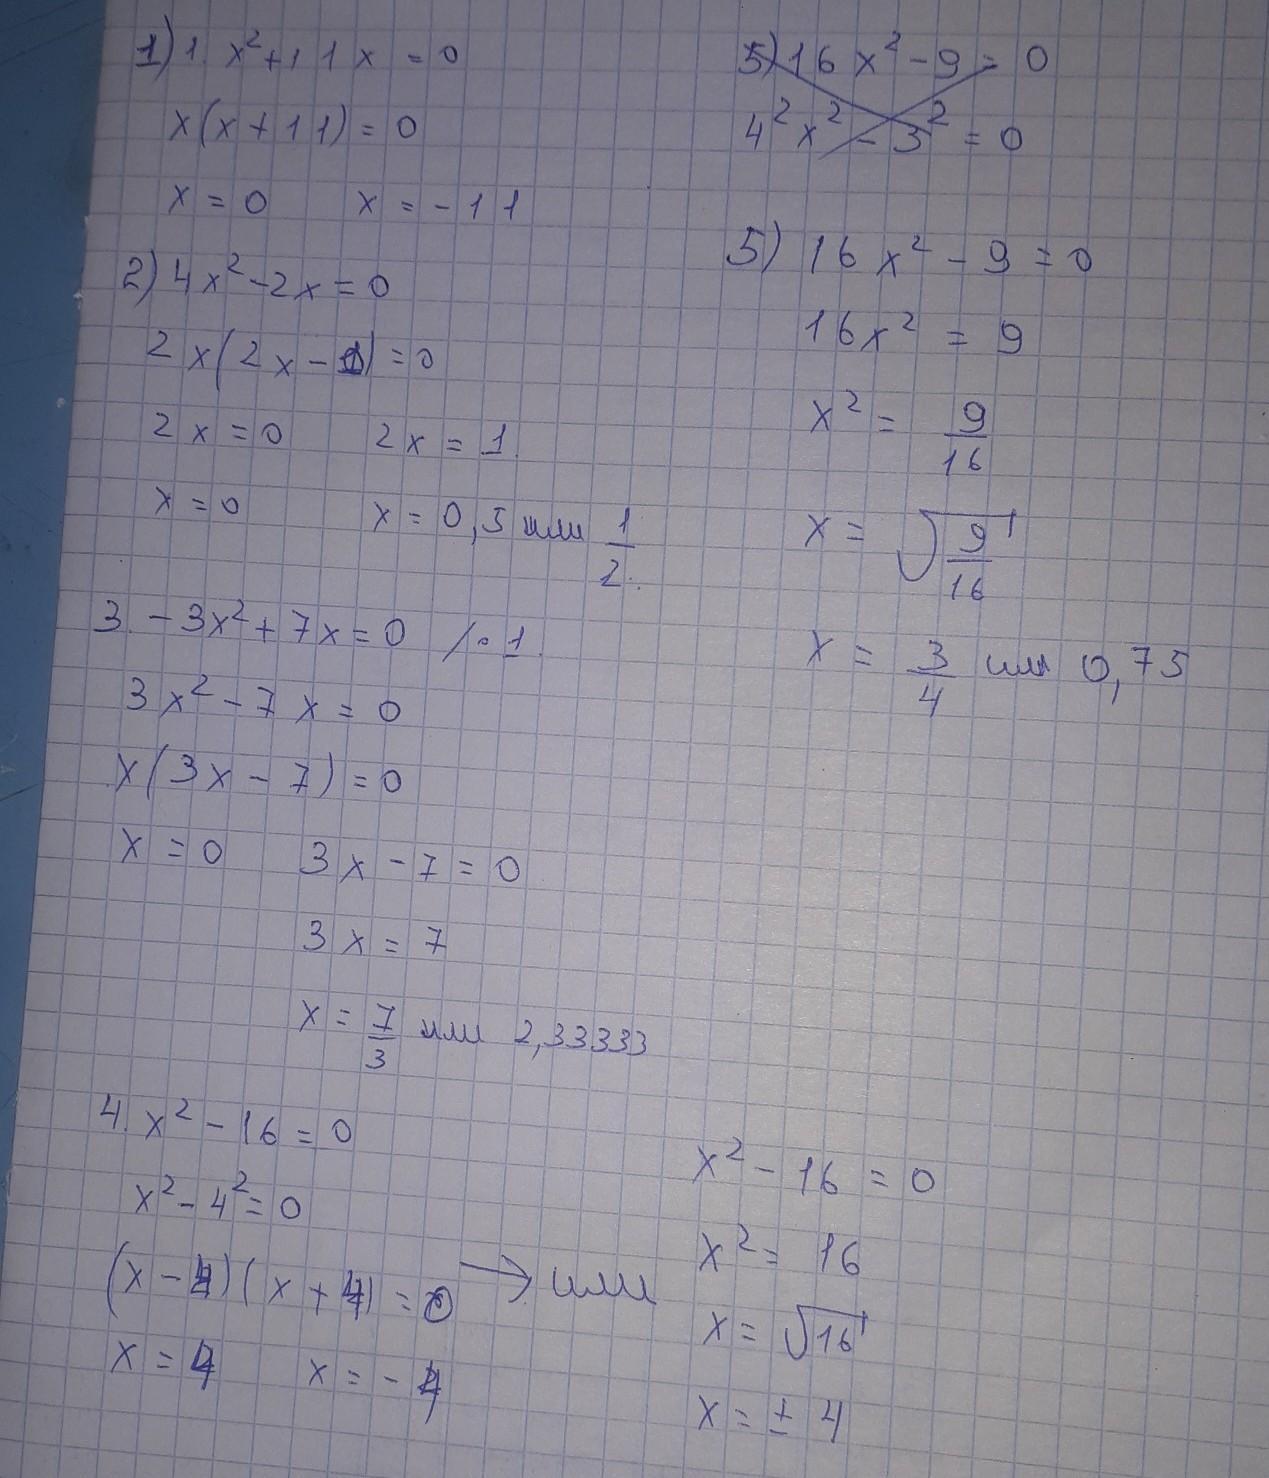 1) 1. x²+11x = 0
x(x+11) = 0
x = 0 x = -11
2) 4x²-2x = 0
2x(2x-1) = 0
2x = 0 2x = 1.
x = 0 x = 0,5 или 1/2.
3. -3x²+7x = 0 /·1.
3x²-7x = 0
x(3x-7) = 0
x = 0 3x-7 = 0
3x = 7
x = 7/3 или 2,33333
4. x²-16 = 0
x²-4² = 0
(x-4)(x+4) = 0 → или
x = 4 x = -4
x²-16 = 0
x² = 16
x = √16
x = ± 4
5) 16x²-9 = 0
4²x²-3² = 0
5) 16x²-9 = 0
16x² = 9
x² = 9/16
x = √9/16
x = 3/4 или 0,75